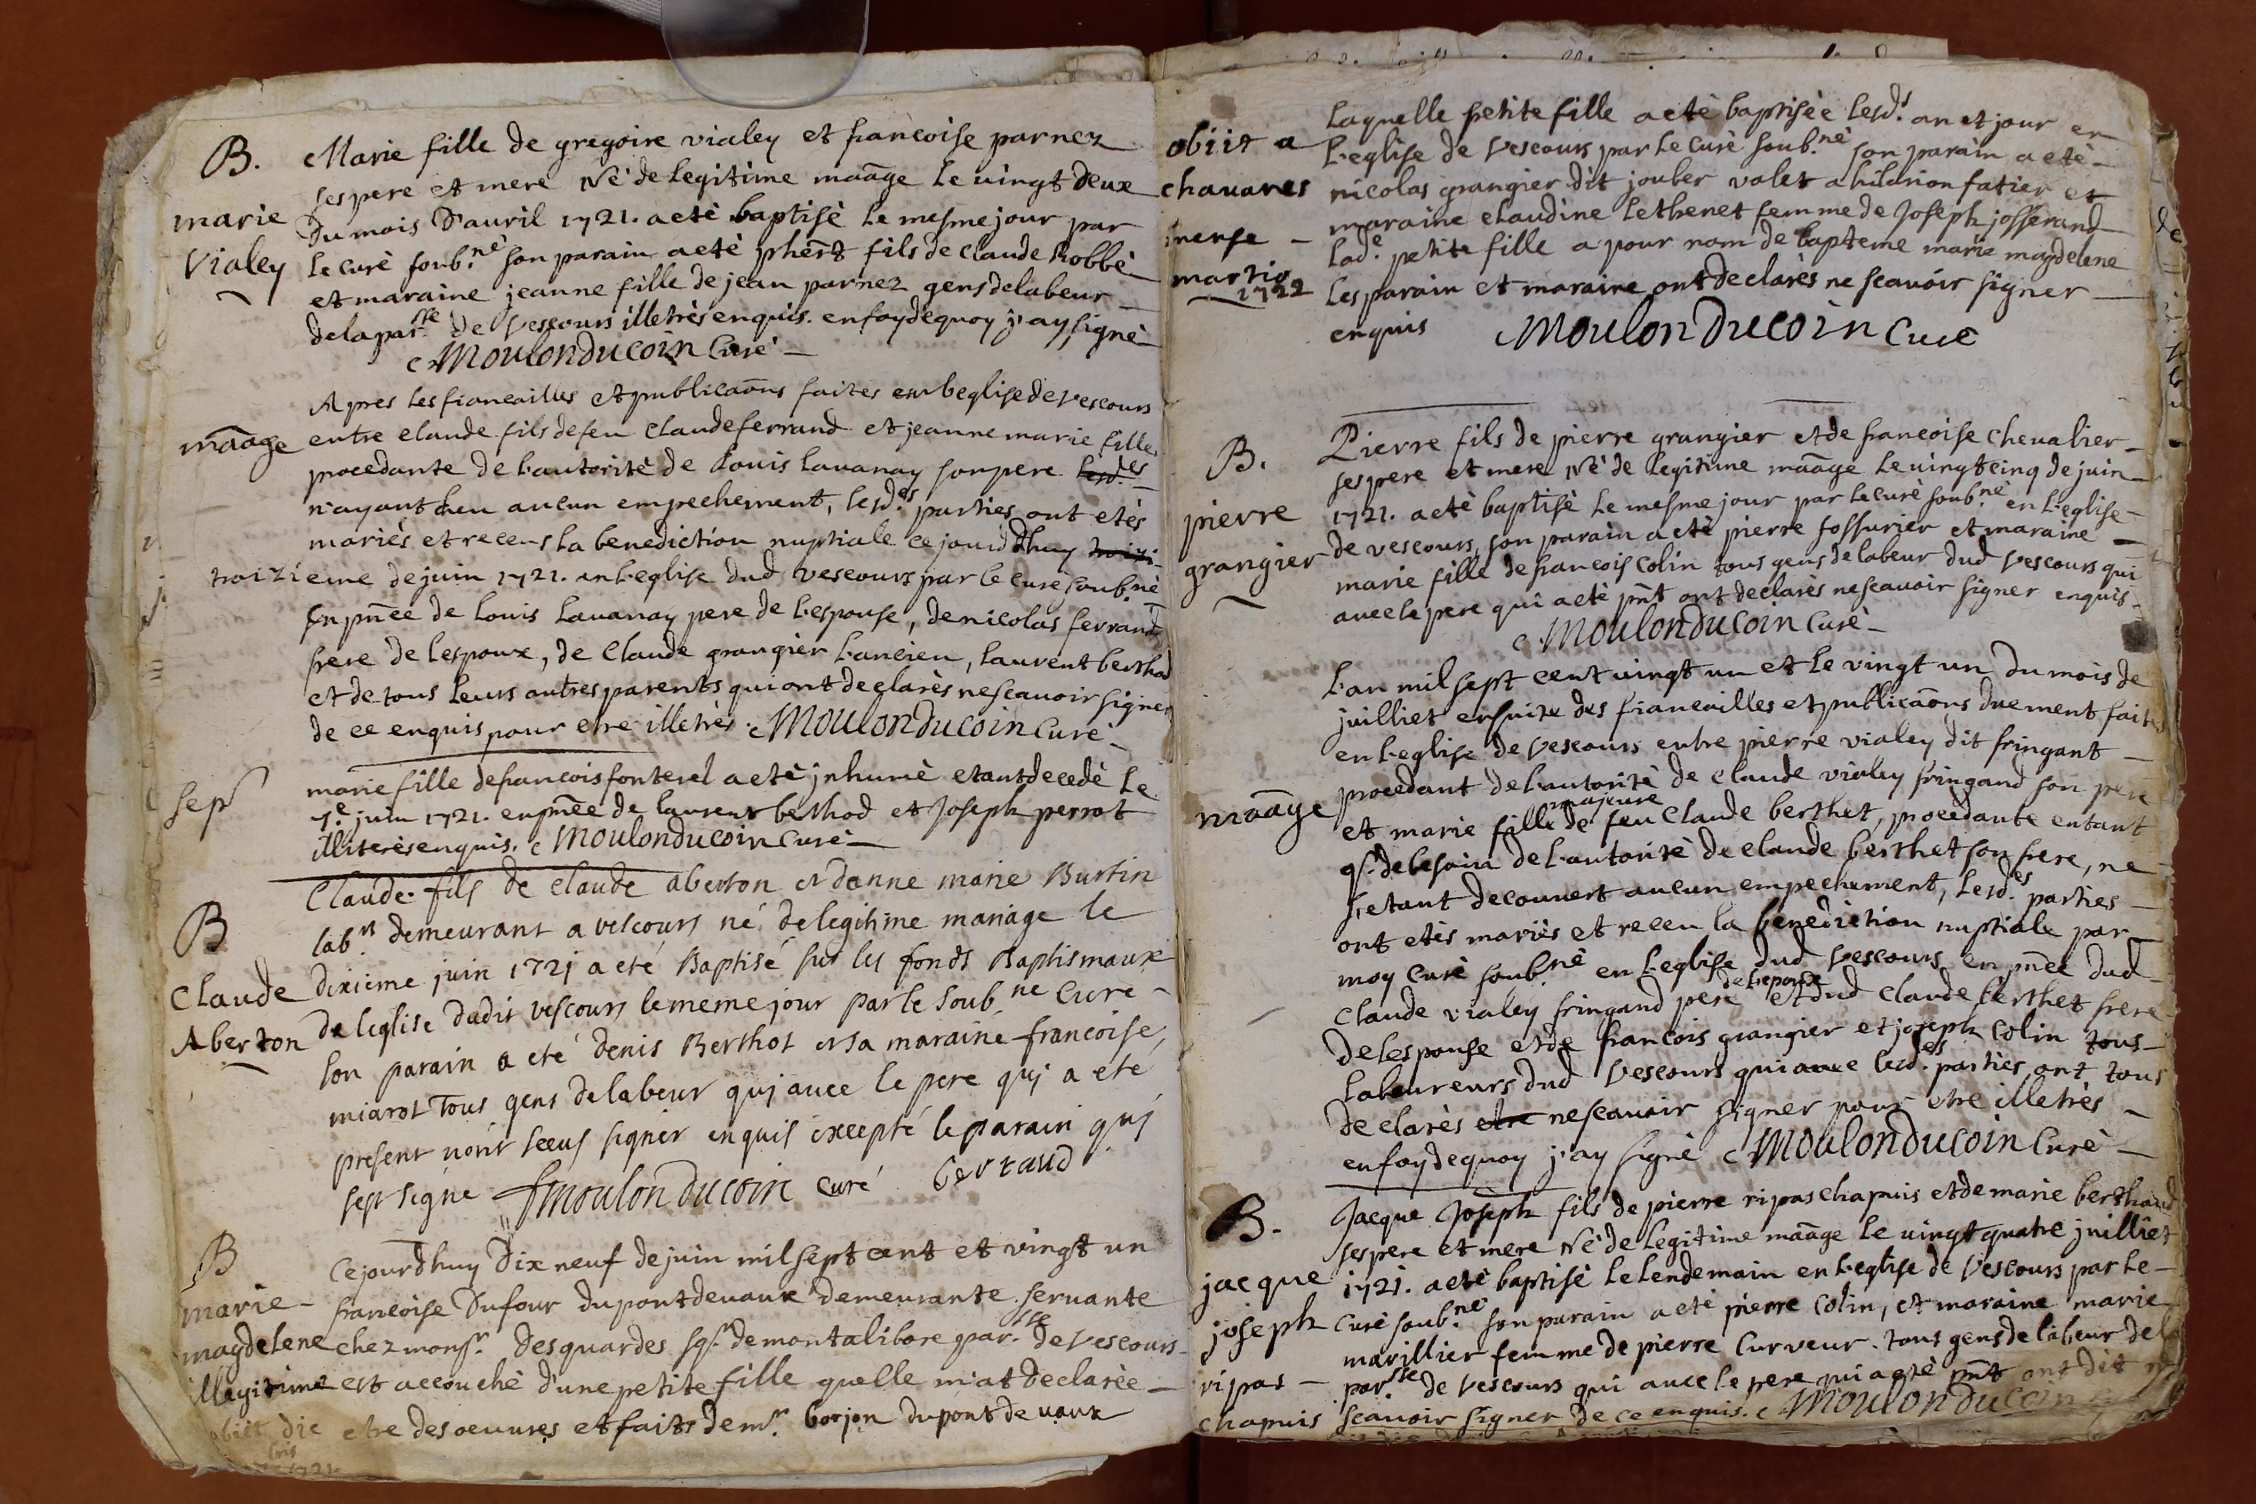 B.
marie
Vialey
Marie fille de gregoire vialey et francoise parnez
ses pere et mere Né de legitime maãge le vingt deux
du mois d'auril 1721. a eté baptisé le mesme jour par
le curé soub.né son parain a eté phért fils de Claude Robbé
et maraine jeanne fille de jean parnez gens de labeur
de la par.sse de Vescours illetrés enquis. en foy de quoy j'ay signé
Moulonducoin Curé
maãge
Apres les fiancailles et publicaõns faites en l'eglise de vescours
entre claude fils de feu Claude ferrand et jeanne marie fille
procedante de l'autorité de Louis Lauanay son pere lesd.es
n'ayant heu aucun empechement, lesd.es parties ont etés
mariés et receus la benediction nuptiale ce jourd'huy
troizieme de juin 1721. en l'eglise dud vescours par le curé soub.né
En pñce de Louis Lauanay pere de l'espouse, de nicolas ferrand
frere de lespoux, de Claude grangier l'ancien, laurent berthod
et de tous leurs autres parents qui ont declarés ne scauoir signer
de ce enquis pour etre illetrés. Moulonducoin Curé
sep.
marie fille de francois fonterel a eté jnhumé etant decedé le
7.e juin 1721. en pñce de laurent bethod et Joseph perrot
illiterés enquis. Moulonducoin Curé
B
Claude
Aberton
Claude fils de claude aberton et danne marie Burtin
lab.rs demeurant a vescours né de legitime mariage le
dixieme juin 1721 a eté Baptisé sur les fonds Baptismaux
de leglise dudit vescours le meme jour par le Soub.né Curé
son parain a eté denis Berthot et sa maraine francoise
miarot Tous gens de labeur quj auec le pere quj a eté
present nont sceus signer enquis excepté le parain quj
sest signé Moulonducoin curé bertaud
B
marie
magdelene
illegitime
obiit die
bris
1721
Cejourdhuy Dix neuf de juin mil sept cent et vingt un
francoise Dufour du pont de vaux demeurante seruante
chez mons.r Desguardes sg.r de montalibore par.sse de Vescours
est accouché d'une petite fille quelle m'at declarée
etre des oeuures et faits de m.r borjon du pont de vaux
obiit a
chauanes
mense
martio
1722
Laquelle petite fille a eté baptisée lesd.s an et jour en
l'eglise de Vescours par le Curé soub.né son parain a eté
nicolas grangier dit jouber valet a hilarion fatier et
maraine claudine Lethenet femme de Joseph josserand
Lad.e petite fille a pour nom de bapteme marie magdelene
Les parain et maraine ont declarés ne scauoir signer
enquis Moulonducoin Curé
B.
pierre
grangier
Pierre fils de pierre grangier et de francoise Chevalier
ses pere et mere Né de legitime maãge le vingt cinq de juin
1721. a eté baptisé le mesme jour par le curé soub.né en l'eglise
de vescours, son parain a eté pierre fossurier et maraine
marie fille de francois Colin tous gens de labeur dud Vescours qui
auec le pere qui a eté pñt ont declarés ne scauoir signer enquis
Moulonducoin Curé
maãge
L'an mil sept cent vingt un et le vingt un du mois de
juilliet ensuite des fiancailles et publicaõns duement faites
en l'eglise de Vescours entre pierre vialey dit fringant
procedant de l'autorité de Claude vialey fringand son pere
et marie fille majeure de feu Claude berthet, procedante entant
q. de besoin de l'autorité de claude berthet son frere, ne
s'etant decouuert aucun empechement, lesd.es parties
ont etés mariés et receu la benediction nuptiale par
moy Curé soub.né en l'eglise dud Vescours en pñce dud
Claude vialey fringand pere de l'epoux et dud Claude berthet frere
de lespouse et de francois grangier et joseph Colin tous
laboureurs dud Vescours qui auec lesd.es parties ont tous
declarés etre ne scauoir signer pour etre illetrés
en foy de quoy j'ay signé Moulonducoin Curé
B.
jacque
joseph
ripas
chapuis
Jacque Joseph fils de pierre ripas chapuis et de marie berthaud
ses pere et mere Né de legitime maãge le vingt quatre juilliet
1721. a eté baptisé le lendemain en l'eglise de Vescours par le
Curé soub.né son parain a eté pierre Colin, et maraine marie
marillier femme de pierre Curveur. tous gens de labeur de la
par.sse de Vescours qui auec le pere qui a eté pñt ont dit ne
scauoir signer de ce enquis. Moulonducoin